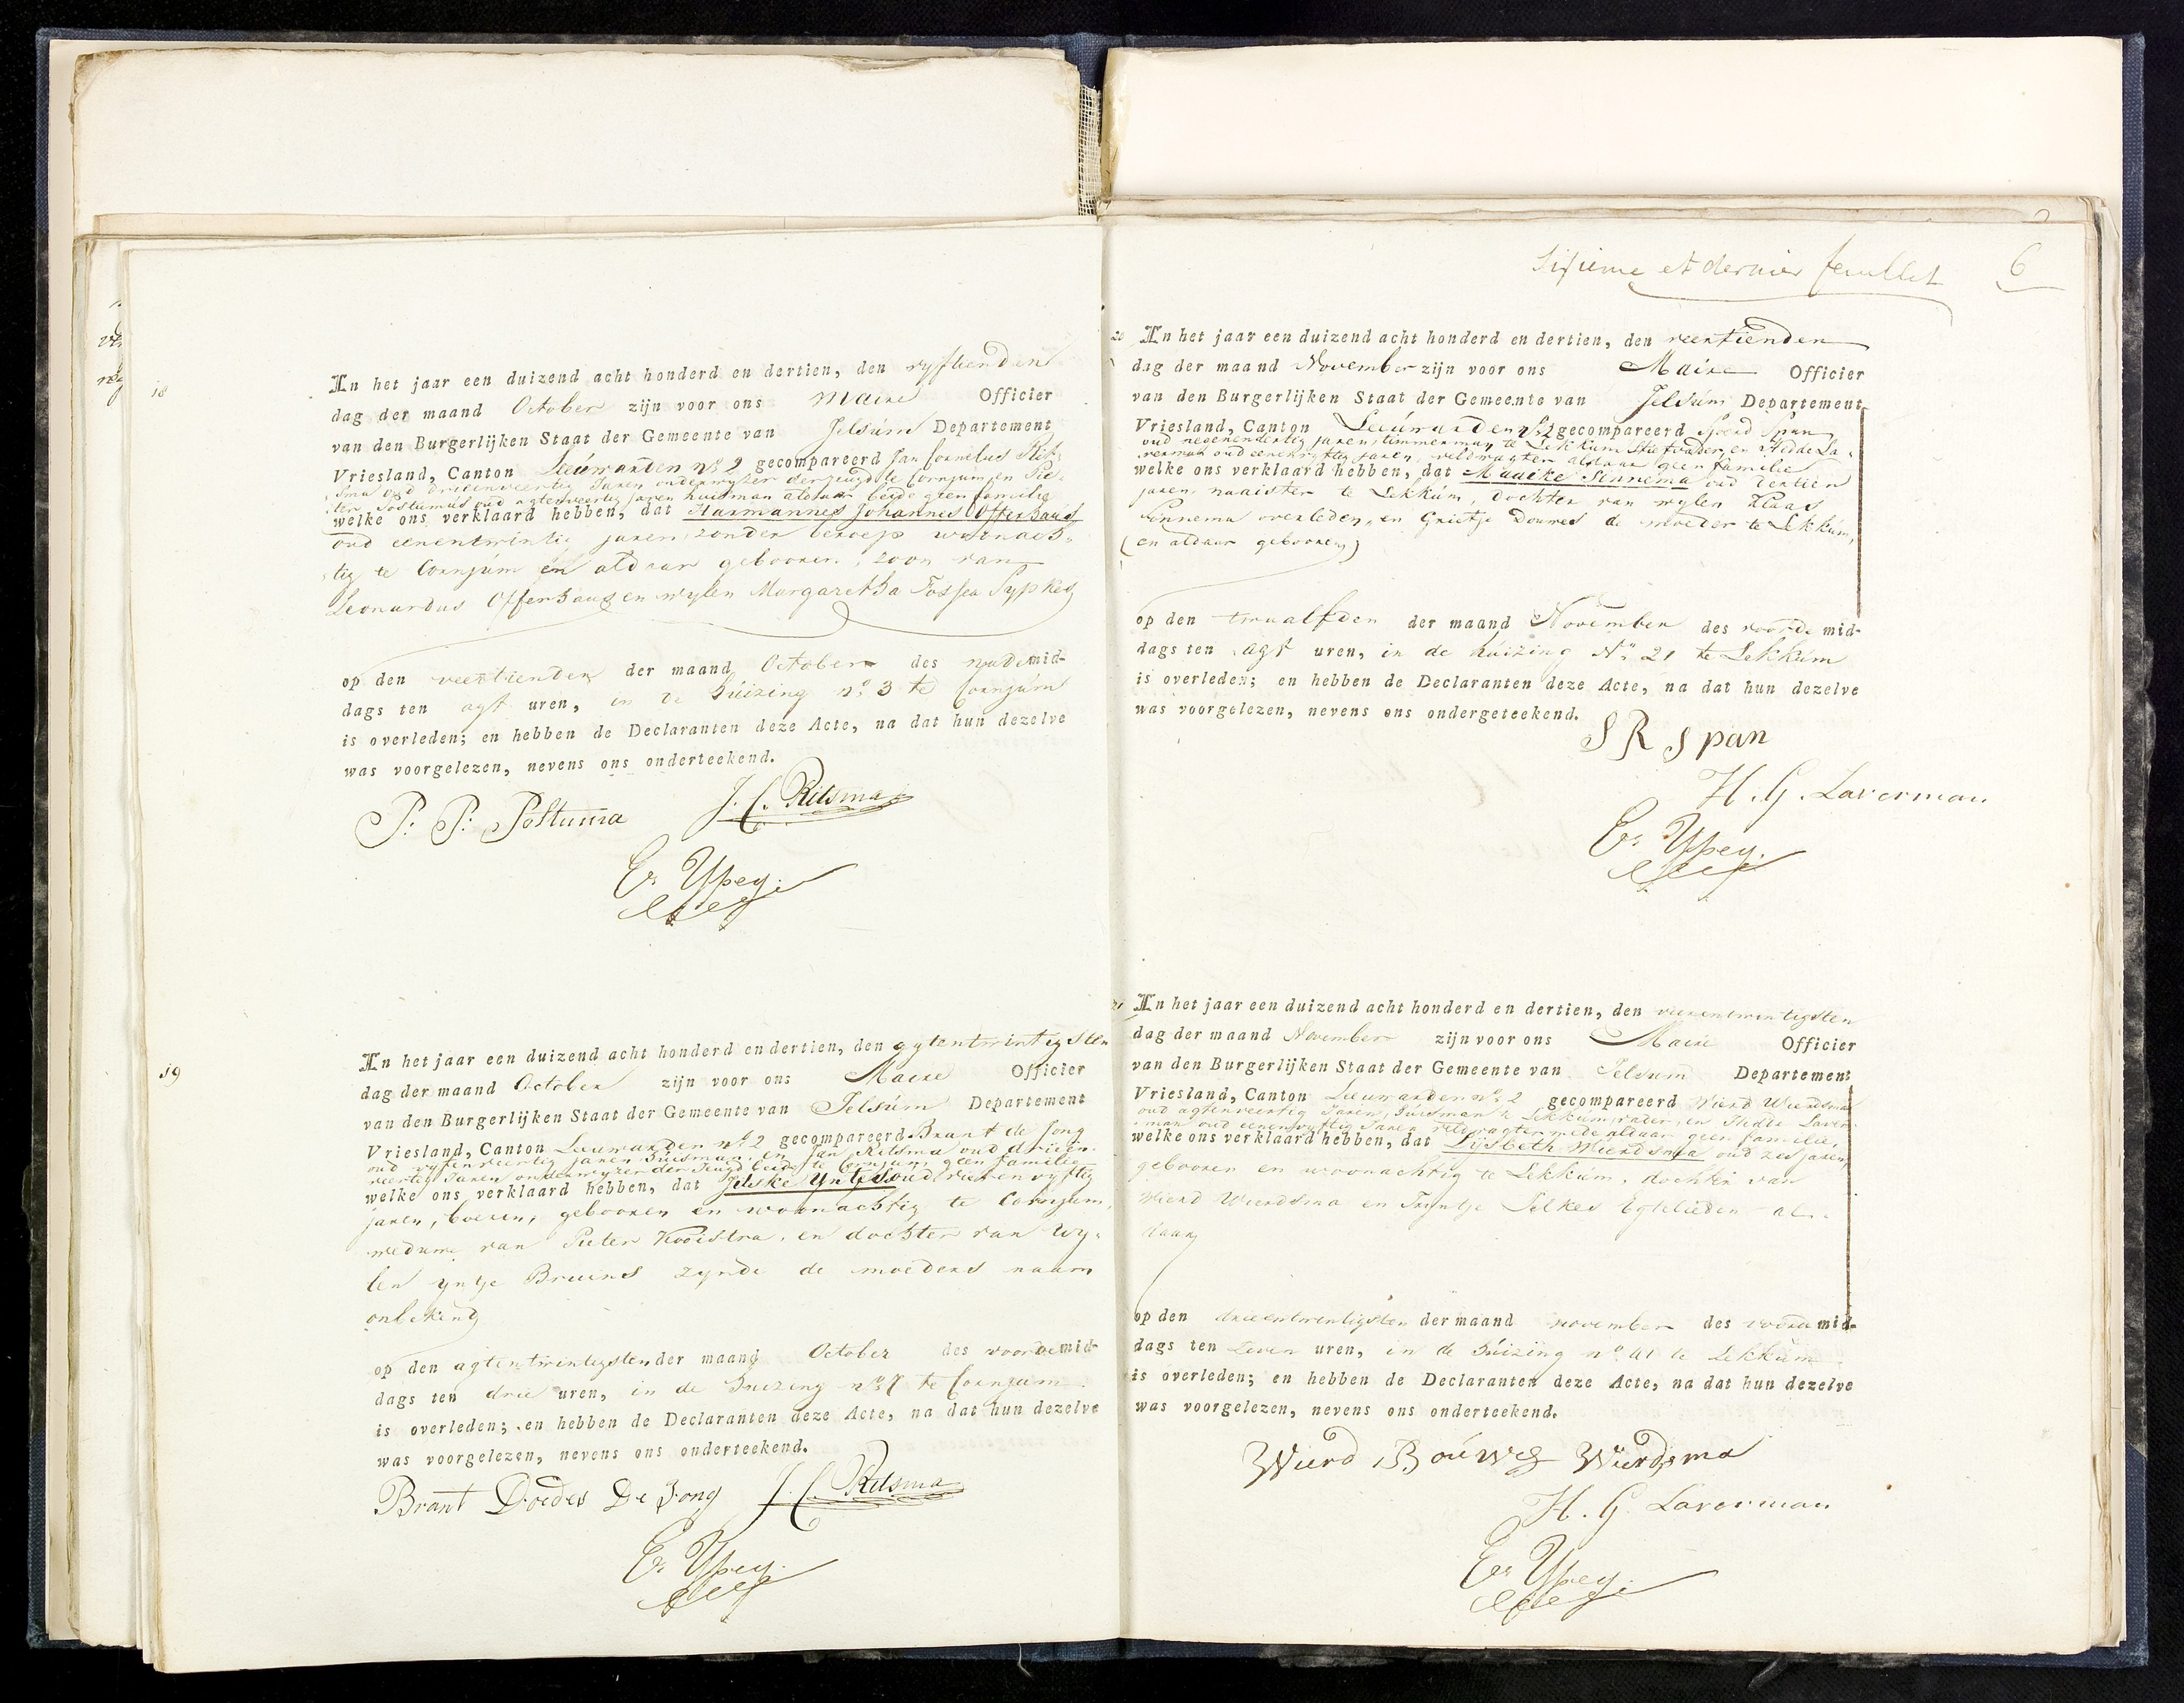 18
In het jaar een duizend acht honderd en dertien, den vyftienden
dag der maand October zijn voor ons Maire Officier
van den Burgerlijken Staat der Gemeente van Jelsúm Departement
Vriesland, Canton Leeúwarden no 2 gecompareerd Jan Cornelius Rits-
sma oud drieenveertig Jaren onderwyzer der jeugd te Cornjum en Pie-
ter Postumus oud agtenveertig jaren huisman aldaar beide geen familie
welke ons verklaard hebben, dat Harmannes Johannes Offerhaus
oud eenentwintig jaren, zonder beroep woonach-
tig te Cornjum en aldaar gebooren, zoon van
Leonardus Offerhaus en wylen Margaretha Fossea Sypkes
op den veertienden der maand October des nademid-
dags ten agt uren, in de húizing no. 3 te Cornjúm
is overleden; en hebben de Declaranten deze Acte, na dat hun dezelve
was voorgelezen, nevens ons onderteekend.
P: P: Postuma J. C. Ritsma
Es Ypey
19
In het jaar een duizend acht honderd en dertien, den agtentwintigsten
dag der maand October zijn voor ons Maire Officier
van den Burgerlijken Staat der Gemeente van Jelsúm Departement
Vriesland, Canton Leeuwarden no 2 gecompareerd Brant de Jong
oud vyfenveertig jaren húisman, en Jan Ritsma oud drieën-
veertig Jaren onderwyzer der Jeugd beide te Cornjum geen familie
welke ons verklaard hebben, dat Jelske Yntjes oud vierenvyftig
jaren, boerin, gebooren en woonachtig te Cornjum,
weduwe van Pieter Kooistra, en dochter van wy-
len Yntje Bruins zynde de moeders naam
onbekend
op den agtentwintigsten der maand October des voordemid-
dags ten drie uren, in de huizing no 7 te Cornjum
is overleden; en hebben de Declaranten deze Acte, na dat hun dezelve
was voorgelezen, nevens ons onderteekend.
Brant Doedes De Jong J. C. Ritsma
Es Ypey
Sixieme et dernier feuillet 6
20
In het jaar een duizend acht honderd en dertien, den veertienden
dag der maand November zijn voor ons Maire Officier
van den Burgerlijken Staat der Gemeente van Jelsúm Departement
Vriesland, Canton Leeúwarden no 2 gecompareerd Sjoerd Span
oud negenendertig jaren, timmerman te Lekkum Stiefvader, en Hedde La-
verman oud eenenvyftig jaren, veldwagter aldaar geen familie
welke ons verklaard hebben, dat Maaike Sinnema oud dertien
jaren, naaister te Lekkúm, dochter van wylen Klaas
Sinnema overleden, en Grietje Douwes de moeder te Lekkúm,
(en aldaar gebooren)
op den twaalfden der maand November des voordemid-
dags ten agt uren, in de húizing No 21 te Lekkúm
is overleden; en hebben de Declaranten deze Acte, na dat hun dezelve
was voorgelezen, nevens ons ondergeteekend.
S R Span
H. G. Laverman
Es Ypey
21
In het jaar een duizend acht honderd en dertien, den vierentwintigsten
dag der maand November zijn voor ons Maire Officier
van den Burgerlijken Staat der Gemeente van Jelsum Departement
Vriesland, Canton Leeuwarden no 2 gecompareerd Wierd Wierdsma
oud agtenveertig Jaren, húisman te Lekkúm, vader, en Hedde Laver-
man oud eenenvyftig Jaren veldwagter mede aldaar geen familie,
welke ons verklaard hebben, dat Lijsbeth Wierdsma oud zes jaren,
gebooren en woonachtig te Lekkúm, dochter van
Wierd Wierdsma en Tryntje Jelkes Egtelieden al-
daar
op den drieentwintigsten der maand november des voordemid-
dags ten zeven uren, in de húizing no 41 te Lekkum
is overleden; en hebben de Declaranten deze Acte, na dat hun dezelve
was voorgelezen, nevens ons onderteekend.
Wierd Bouwes Wierdsma
H. G. Laverman
Es Ypey